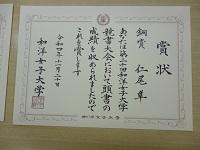 賞状
銅賞 仁尾 隼
あなたは第二十四回和洋女子大学
競書大会において頭書の
成績を収められましたので
これを賞します
令和四年十一月二十日
和洋女子大学
和洋女子大学